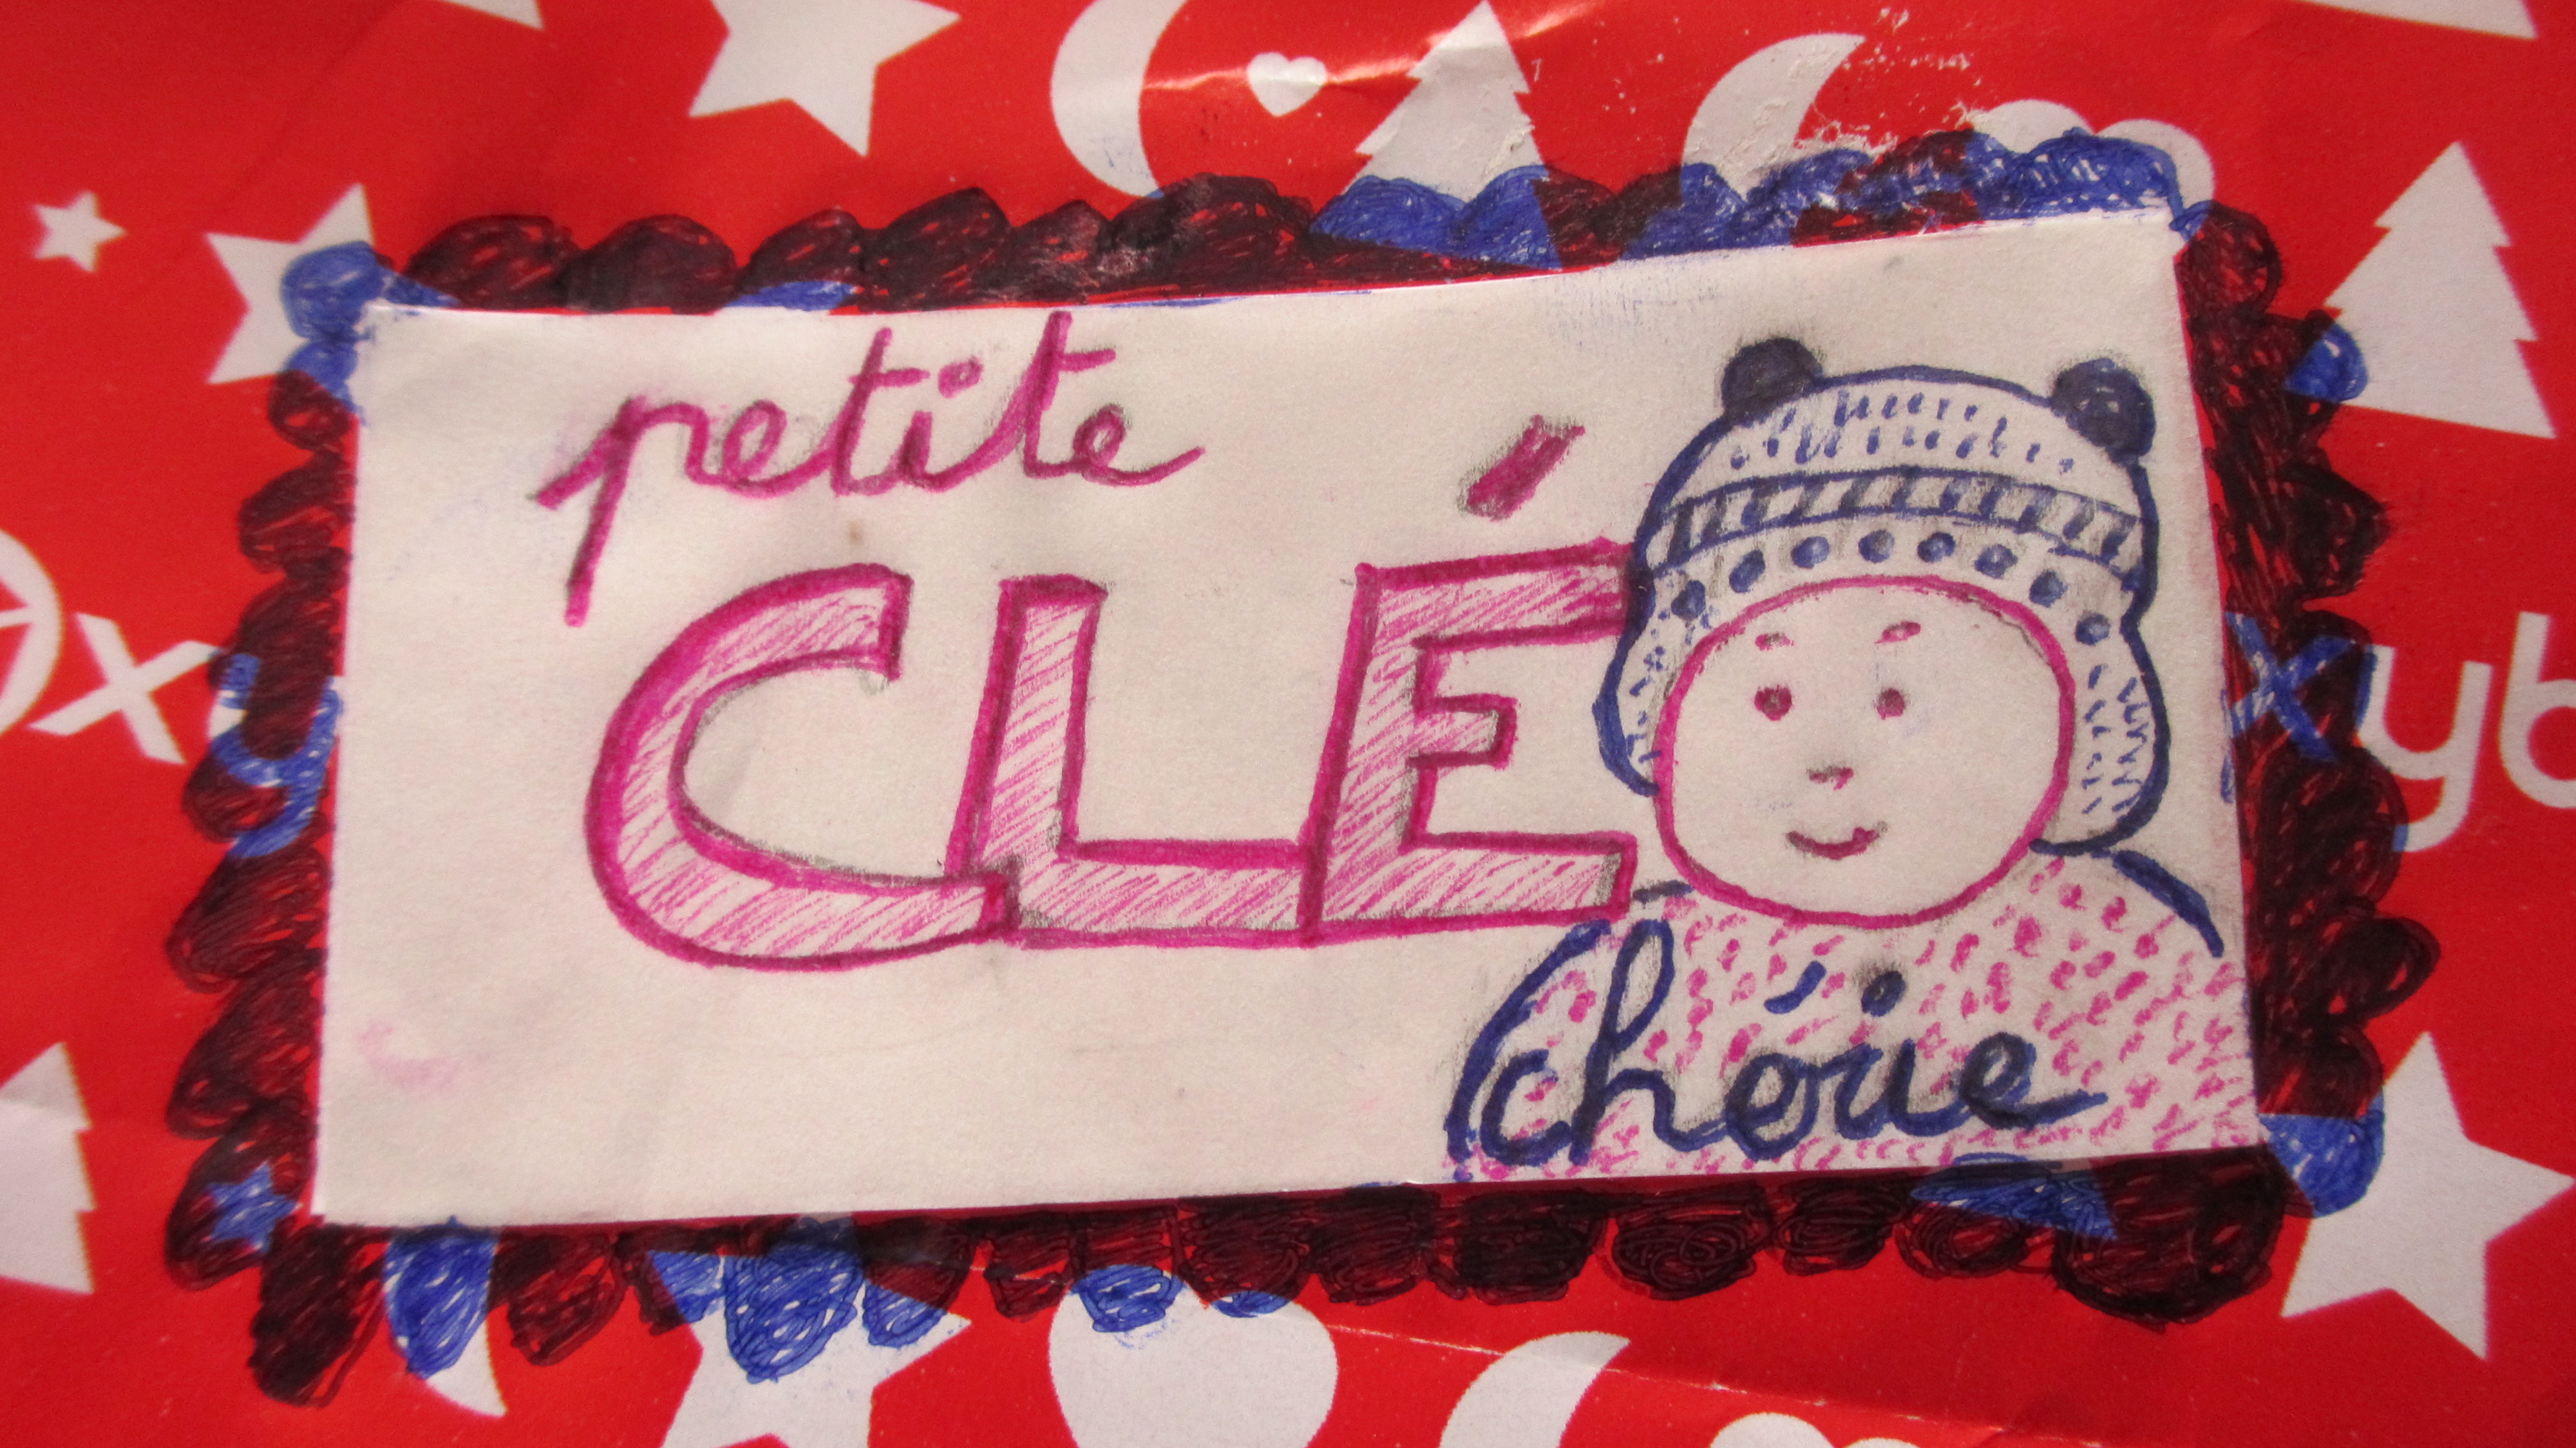 petite
CLÉ
chérie
oxy
xyb